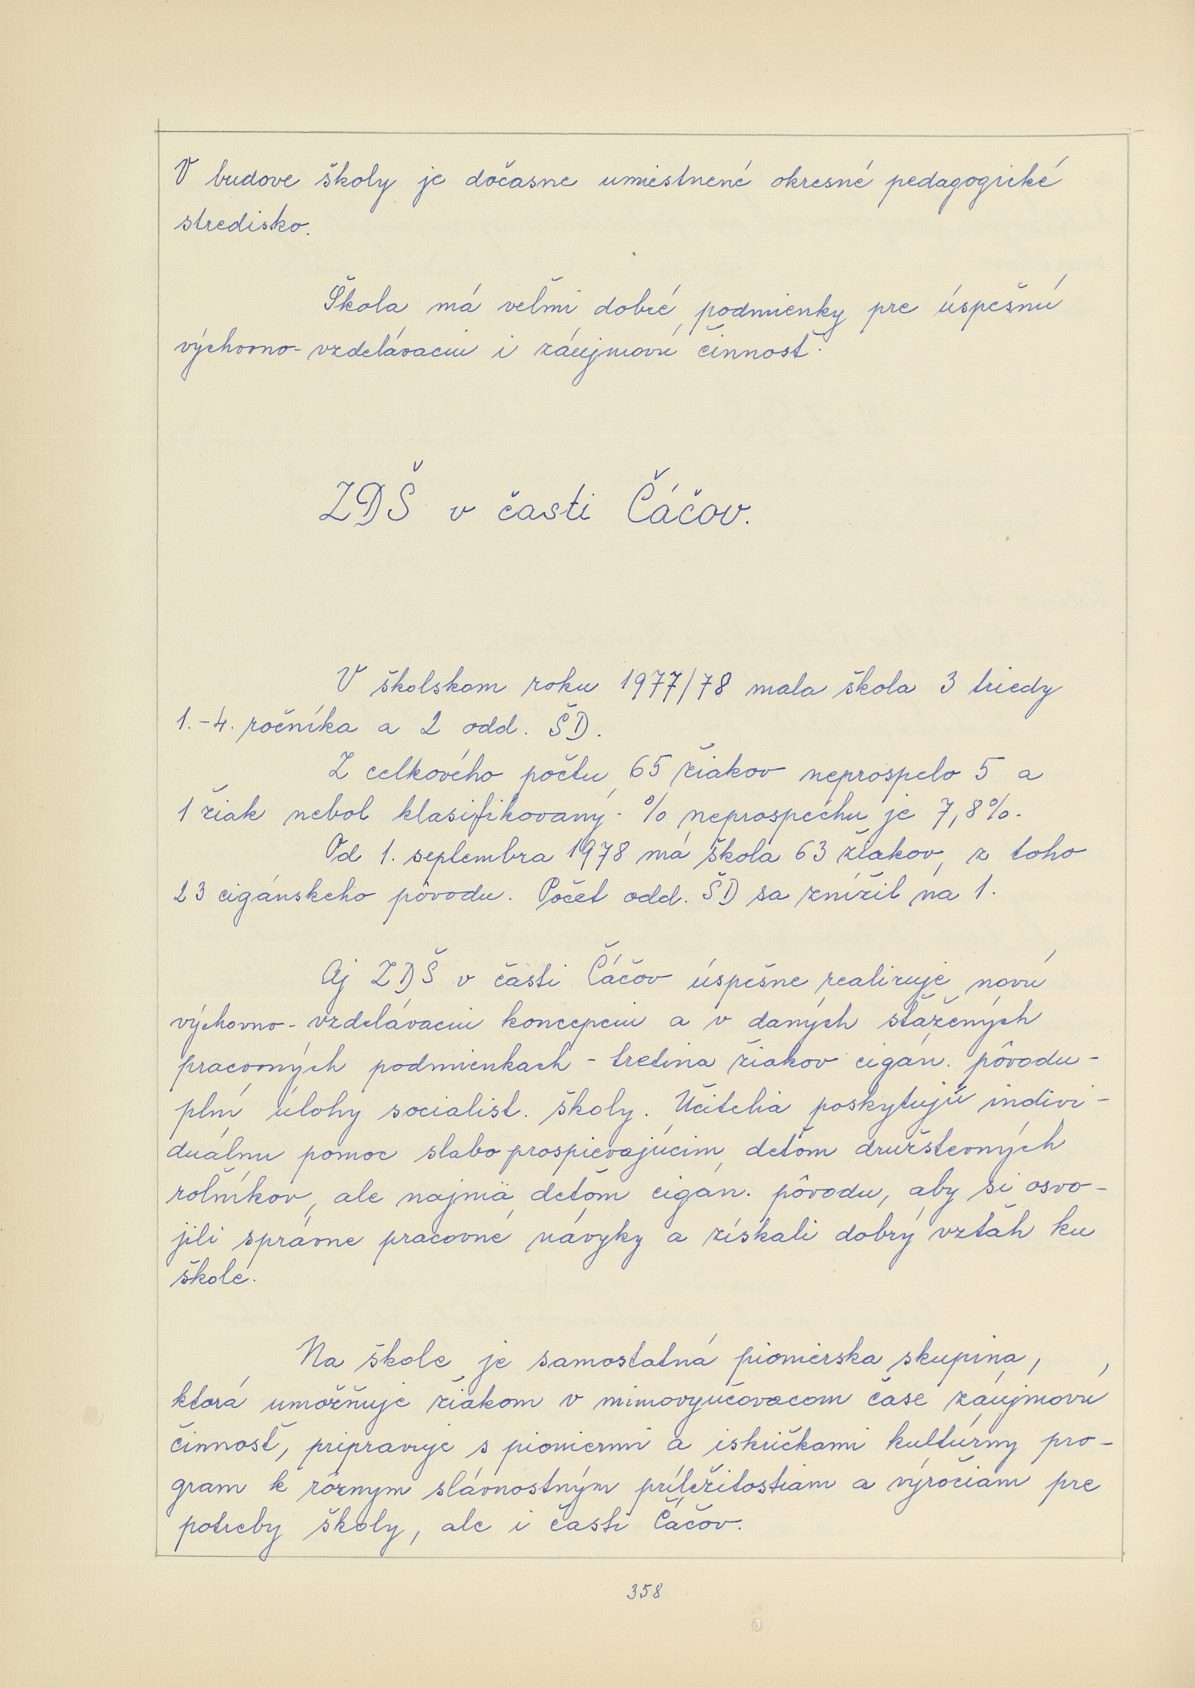 V budove školy je dočasne umiestnené okresné pedagogické
stredisko.
Škola má veľmi dobré podmienky pre úspešnú
výchovno-vzdelávaciu i záujmovú činnosť.
ZDŠ v časti Čáčov.
V školskom roku 1977/78 mala škola 3 triedy
1.-4. ročníka a 2 odd. ŠD.
Z celkového počtu 65 žiakov neprospelo 5 a
1 žiak nebol klasifikovaný. % neprospechu je 7,8%.
Od 1. septembra 1978 má škola 63 žiakov, z toho
23 cigánskeho pôvodu. Počet odd. ŠD sa znížil na 1.
Aj ZDŠ v časti Čáčov úspešne realizuje novú
výchovno-vzdelávaciu koncepciu a v daných sťažených
pracovných podmienkach - tretina žiakov cigán. pôvodu -
plní úlohy socialist. školy. Učitelia poskytujú indivi-
duálnu pomoc slabo prospievajúcim deťom družstevných
roľníkov, ale najmä deťom cigán. pôvodu, aby si osvo-
jili správne pracovné návyky a získali dobrý vzťah ku
škole.
Na škole je samostatná pionierska skupina,
ktorá umožňuje žiakom v mimovyučovacom čase záujmovú
činnosť, pripravuje s pioniermi a iskričkami kultúrny pro-
gram k rôznym slávnostným príležitostiam a výročiam pre
potreby školy, ale i časti Čáčov.
358